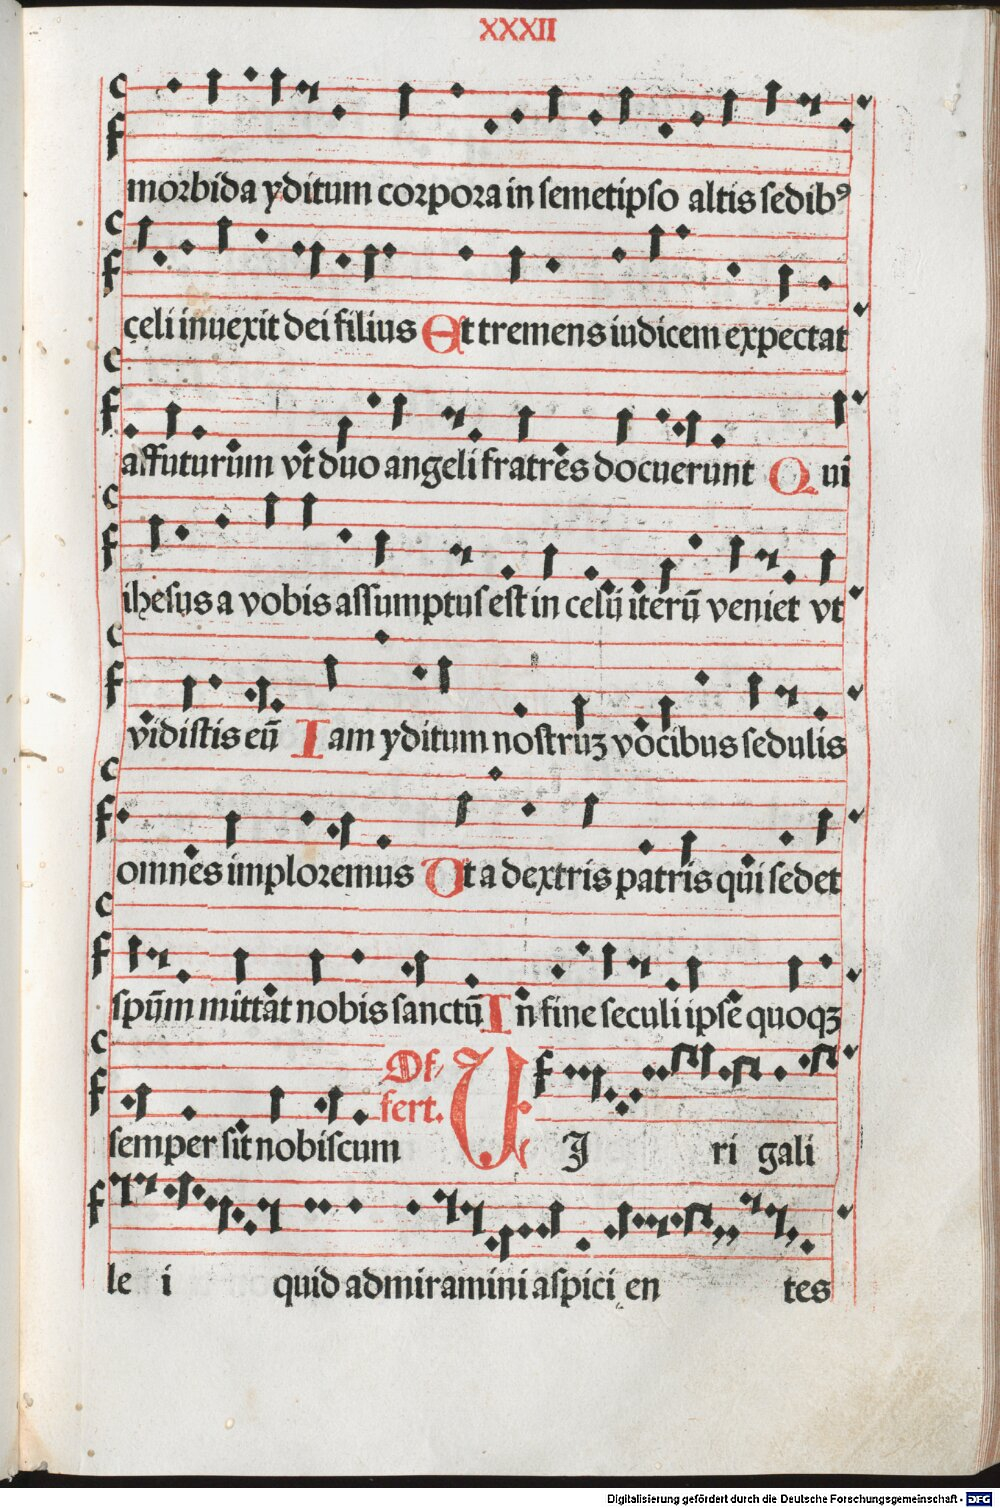 XXXII
morbida yditum corpora in semetipso altis sedibꝰ
celi inuexit dei filius Et tremens iudicem expectat
affuturum vt duo angeli fratres docuerunt Qui
ihesus a vobis assumptus est in celū iterū veniet vt
vidistis eū Iam yditum nostruʒ vocibus sedulis
omnes imploremus Vt a dextris patris qui sedet
spūm mittat nobis sanctū In fine seculi ipse quoqʒ
semper sit nobiscum Offert. VI ri gali
le i quid admiramini aspici en tes
Digitalisierung gefördert durch die Deutsche Forschungsgemeinschaft - DFG